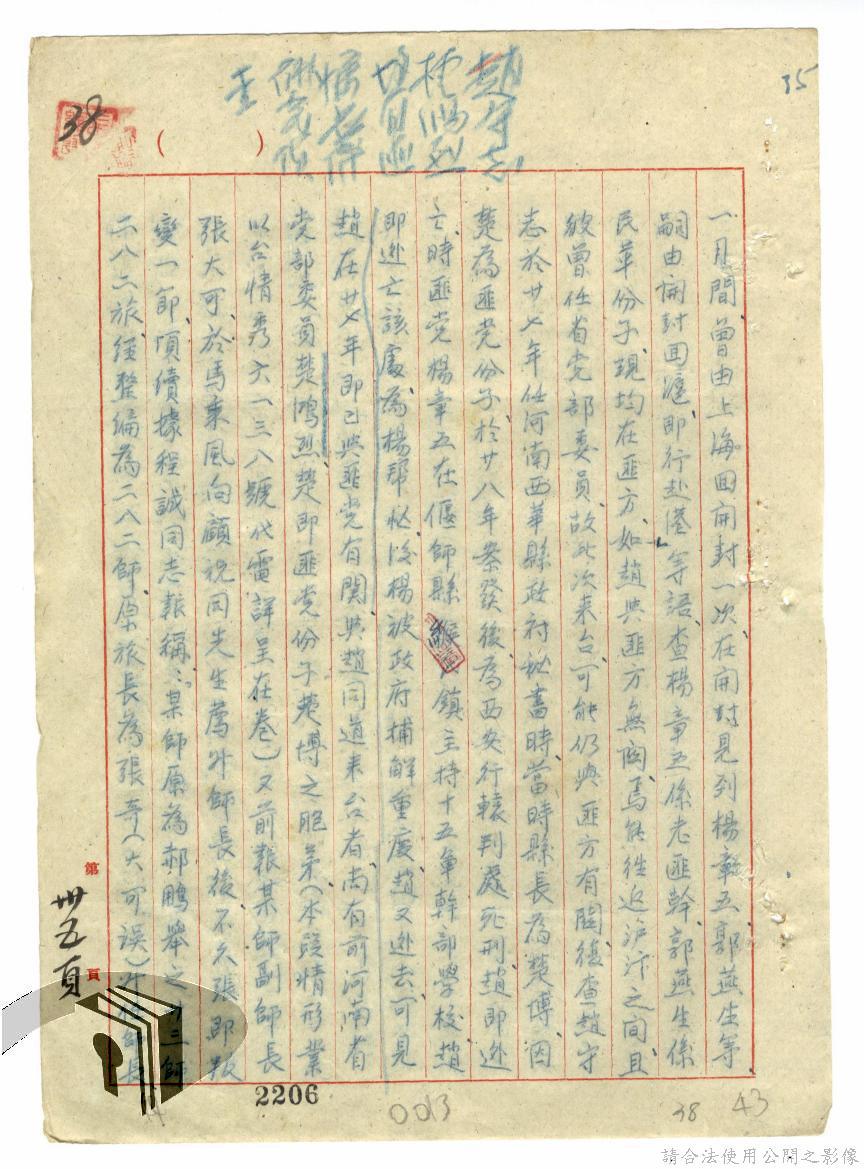 趙守志
楊鴻烈
35
38
( )
一月間曾由上海回開封一次在開封見到楊章五郭燕生等
嗣由開封回滬即行赴港」等語查楊章五係老匪幹郭燕生係
民革份子現均在匪方如趙與匪方無關焉能往返沪汴之間且
彼曾任省党部委員故此次来台可能仍與匪方有關復查趙守
志於廿七年任河南西華縣政府秘書時當時縣長為楚博因
楚為匪党份子於廿八年案發後為西安行轅判處死刑趙即逃
亡時匪党楊章五在偃師縣緱氏鎮主持十五軍幹部學校趙
即逃亡該處為楊帮忙後楊被政府捕解重慶趙又逃去可見
趙在廿七年即已與匪党有関與趙同道来台者尚有前河南省
党部委員楚鴻烈楚即匪党份子楚博之胞弟(本段情形業
以台情秀六一三八號代電詳呈在卷)又前報某師副師長
張大可於馬乘風向顧祝同先生薦升師長後不久張即叛
變一節頃續據程誠同志報稱：某師原為郝鵬舉之廿三師
二八二旅經整編為二八二師原旅長為張奇(大可誤)升任師長
第卅五頁
2206
0013
38
43
請合法使用公開之影像